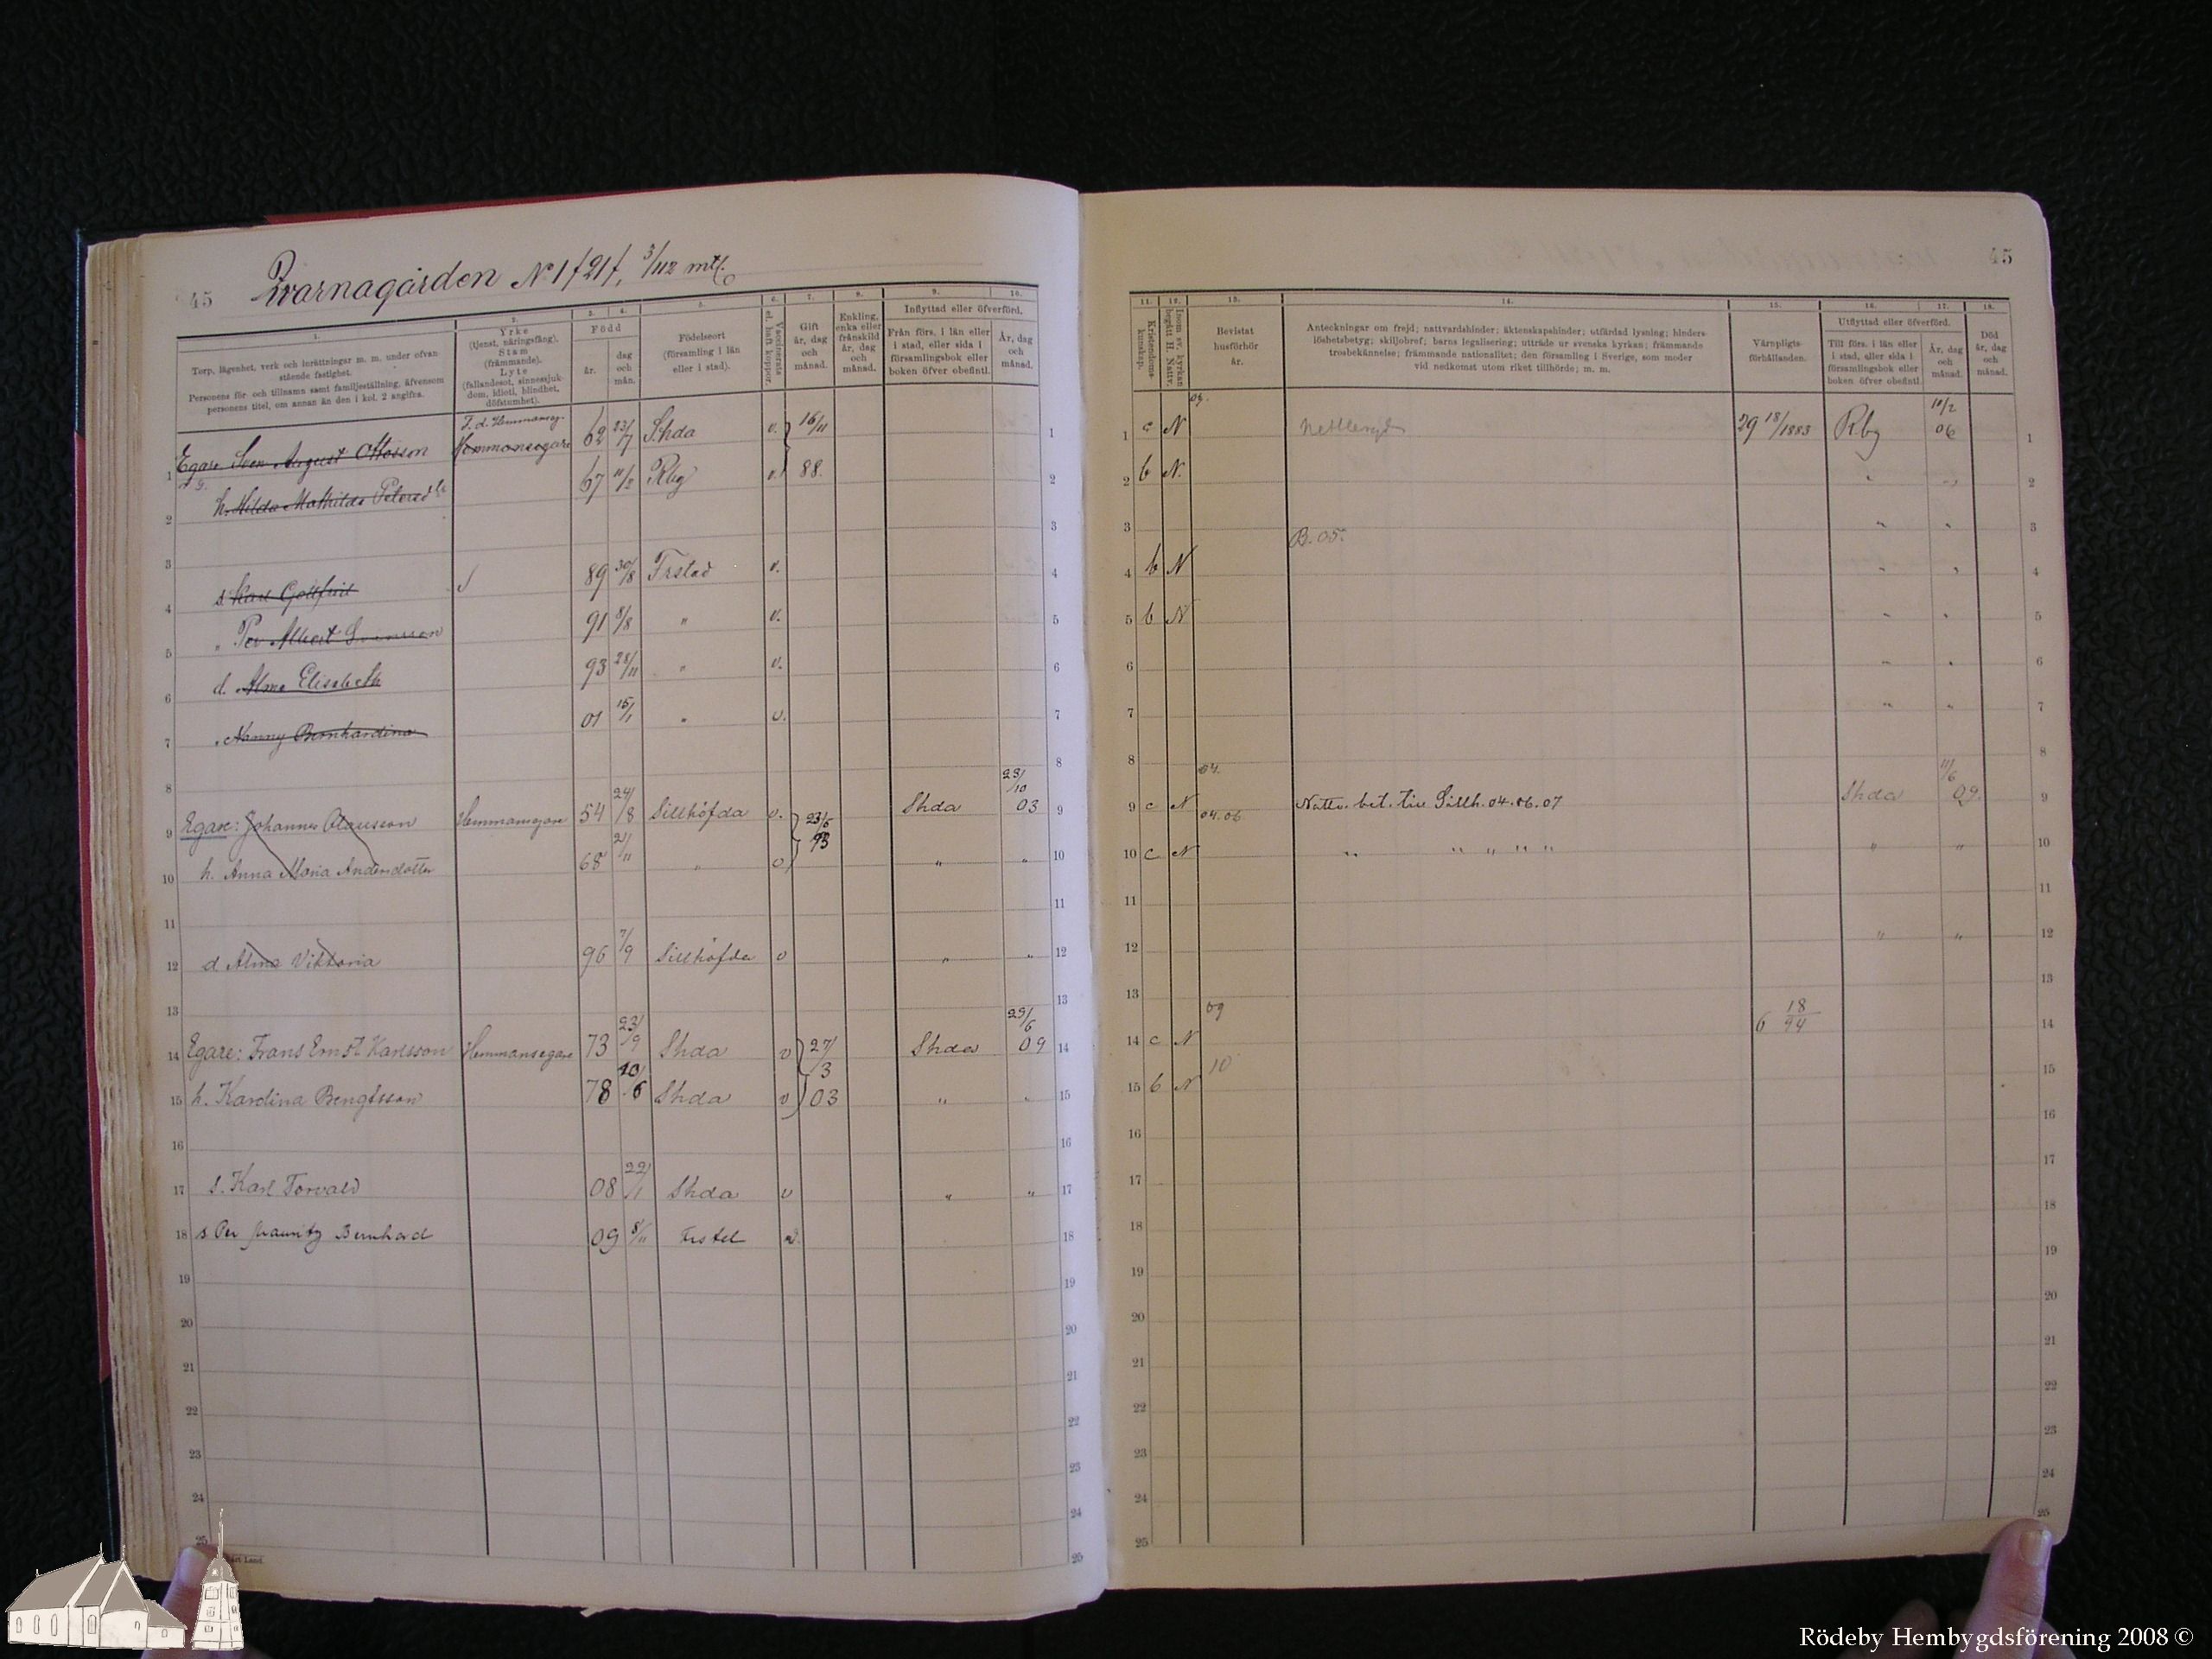 45 Qvarnagården N 1 f 21 f, 3/112 mtl.
1. 2. 3. 4. 5. 6. 7. 8. 9. 10.
Torp, lägenhet, verk och inrättningar m. m. under ofvan
stående fastighet.
Personens för- och tillnamn samt familjeställning, äfvensom
personens titel, om annan än den i kol. 2 angifna.
Yrke
(tjenst, näringsfång).
Stam
(främmande).
Lyte
(fallandesot, sinnessjuk-
dom, idioti, blindhet,
döfstumhet).
Född
år.
dag
och
mån.
Födelseort
(församling i län
eller i stad).
Vaccinerats
el. haft koppor.
Gift
år, dag
och
månad.
Enkling,
enka eller
frånskild
år, dag
och
månad.
Inflyttad eller öfverförd.
Från förs. i län eller
i stad, eller sida i
församlingsbok eller
boken öfver obefintl.
År, dag
och
månad.
F. d. Hemmanseg.
1 Egare Sven August Ottosson Hemmansegare 62 23/7 Shda v. 16/11 1
2 h. Hilda Mathilda Petersd 67 11/2 Rby v. 88. 2
3 3
4 s. Karl Gottfrid 89 30/8 Frstad v. 4
5 " Per Albert Svensson 91 8/8 " v. 5
6 d. Alma Elisabeth 93 28/11 " v. 6
7 " Nanny Bernhardina 01 16/1 " v. 7
8 8
9 Egare: Johannes Olausson Hemmansegare 54 24/8 Sillhöfda v. 23/6 93 Shda 23/10 03 9
10 h. Anna Maria Andersdotter 68 2/11 " v " " 10
11 11
12 d Alma Viktoria 96 7/9 Sillhöfda v " " 12
13 13
14 Egare: Frans Ernst Karlsson Hemmansegare 73 23/9 Shda v 27/3 Shda 29/6 09 14
15 h. Karolina Bengtsson 78 20/6 Shda v 03 " " 15
16 16
17 s. Karl Torvald 08 22/1 Shda v " " 17
18 s Per Mauritz Bernhard 09 8/11 Frstd v. 18
19 19
20 20
21 21
22 22
23 23
24 24
25 25
45
11. 12. 13. 14. 15. 16. 17. 18.
Kristendoms-
kunskap.
Inom sv. kyrkan
begått H. Nattv.
Bevistat
husförhör
år.
Anteckningar om frejd; nattvardshinder; äktenskapshinder; utfärdad lysning; hinders-
löshetsbetyg; skiljobref; barns legalisering; utträde ur svenska kyrkan; främmande
trosbekännelse; främmande nationalitet; den församling i Sverige, som moder
vid nedkomst utom riket tillhörde; m. m.
Värnpligts-
förhållanden.
Utflyttad eller öfverförd.
Till förs. i län eller
i stad, eller sida i
församlingsbok eller
boken öfver obefintl.
År, dag
och
månad.
Död
år, dag
och
månad.
1 c N 29 18/1883 Rby 10/2 06 1
2 b N. " " 2
3 " " 3
B. 05.
4 b N " " 4
5 b N " " 5
6 " " 6
7 " " 7
8 8
04.
9 c N Nattv. bet. till Sillh. 04. 06. 07 Shda 11/6 09. 9
04. 06
10 c N " " " " " " " 10
11 11
12 " " 12
13 13
09
14 c N 6 18/94 14
10
15 b N 15
16 16
17 17
18 18
19 19
20 20
21 21
22 22
23 23
24 24
25 25
Rödeby Hembygdsförening 2008 ©